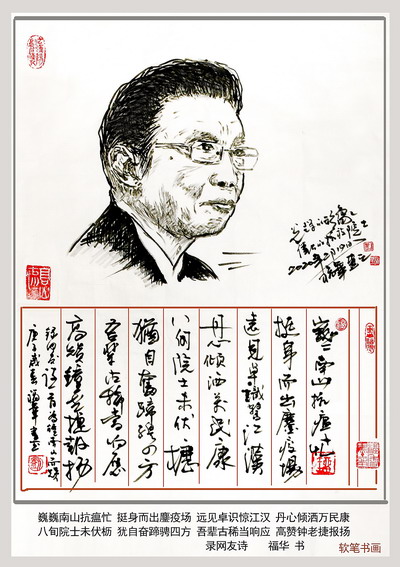 2020年2月10日
巍巍南山抗瘟忙
挺身而出鏖疫場
遠見卓識驚江漢
丹心倾洒萬民康
八旬院士未伏櫪
猶自奮蹄骋四方
吾輩古稀当响應
高讚鐘老捷報揚
巍巍南山抗瘟忙 挺身而出鏖疫场 远见卓识惊江汉 丹心倾洒万民康
八旬院士未伏枥 犹自奋蹄骋四方 吾辈古稀当响应 高赞钟老捷报扬
录网友诗 福华 书 软笔书画